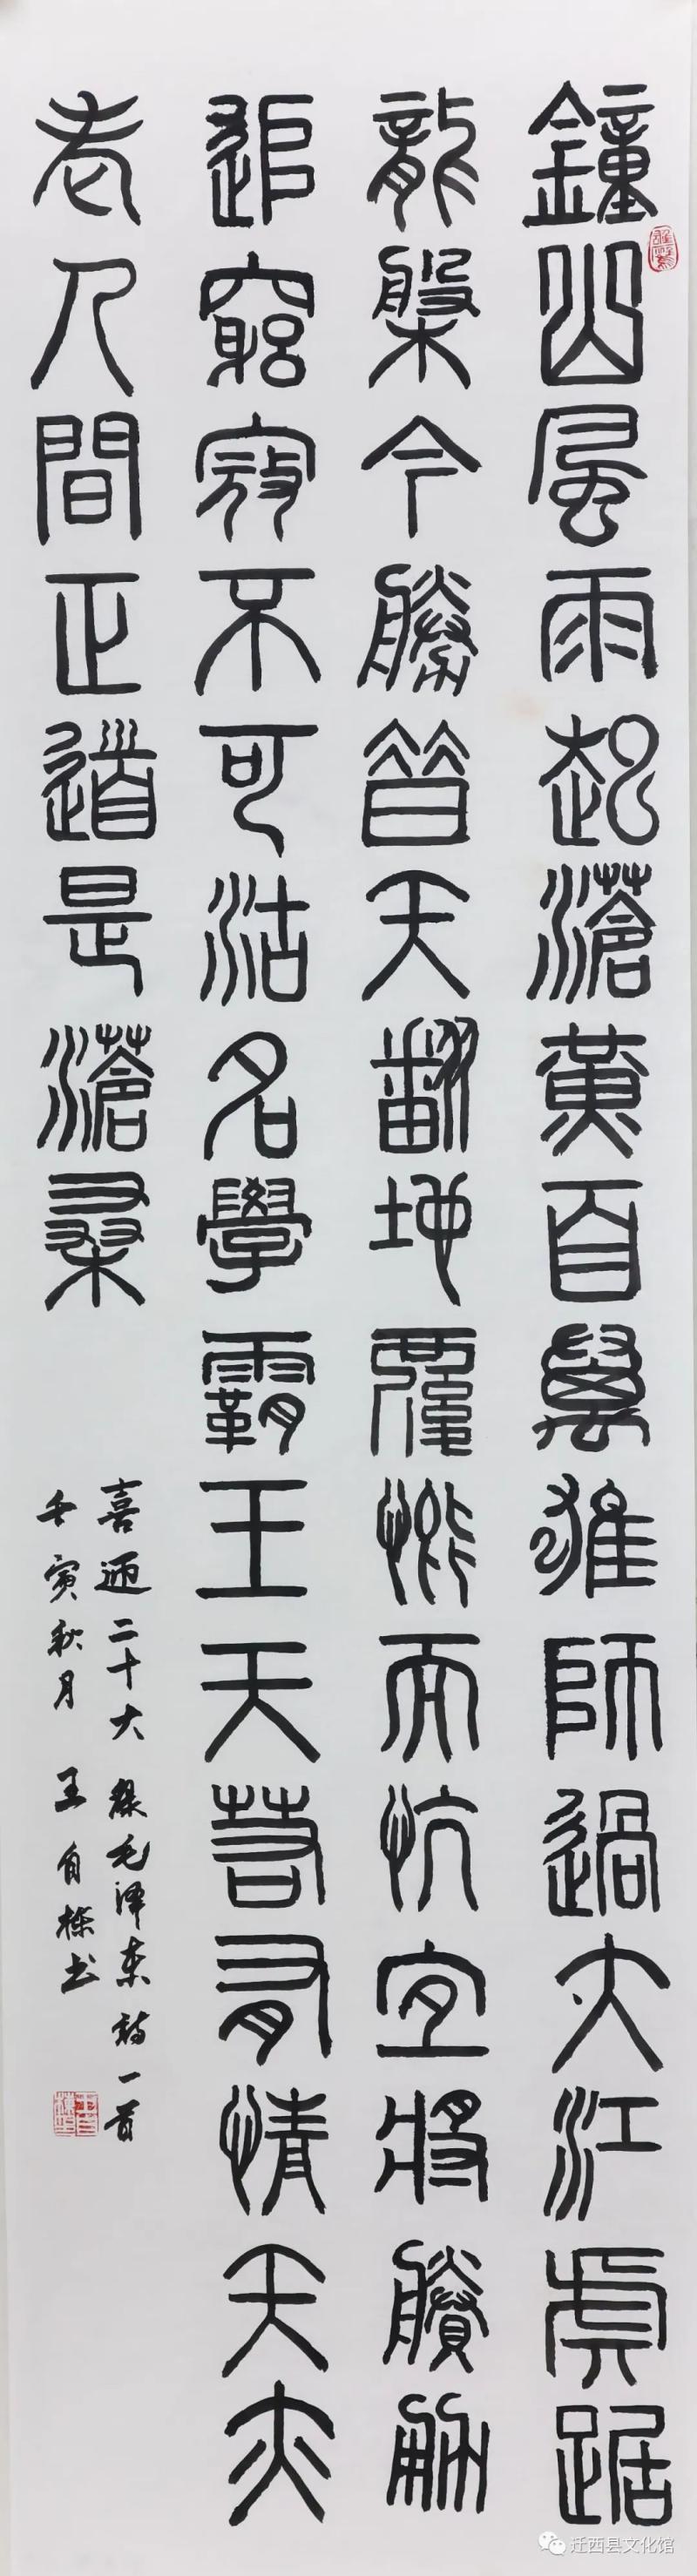 鐘山風雨起滄黃百萬雄師過大江虎踞
龍槃今勝昔天翻地覆慨而忼宜將賸勇
追窮寇不可沽名學霸王天若有情天亦
老人間正道是滄桑
喜迎二十大 録毛泽东诗一首
壬寅秋月 王自栋书
迁西县文化馆